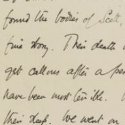 found the bodies of Scott,
fine story. Their deaths
get callous after a pe
have been most terrible.
their death. We went on